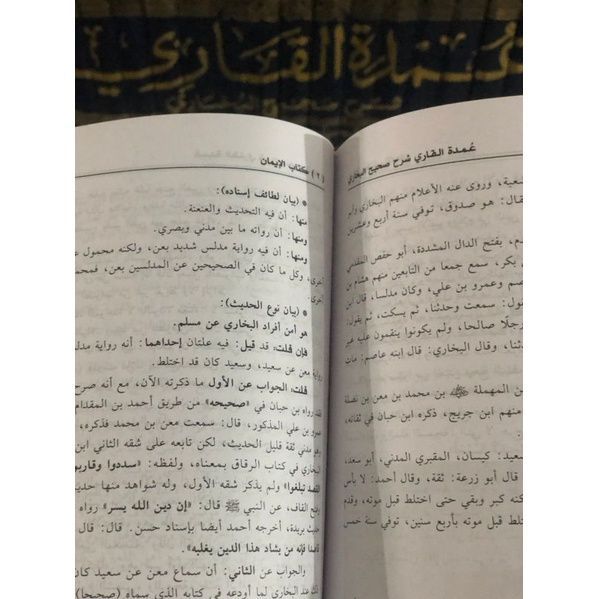 عمدة القاري
شرح صحيح البخاري
عمدة القاري شرح صحيح البخاري
عية، وروى عنه الأعلام منهم البخاري
قال: هو صدوق، توفي سنة أربع وعشرين
م، بفتح الدال المشددة، أبو حفص المقدمي
بكر، سمع جمعا من التابعين منهم هشام بن
صم وعمرو بن علي، وكان مدلسا، قال ابن
ول: سمعت وحدثنا، ثم يسكت، ثم يقول:
رجلا صالحا، ولم يكونوا ينقمون عليه غير
ثنا، وقال البخاري: قال ابنه عاصم: مات
ن المهملة ﷺ بن محمد بن معن بن نضلة
منهم ابن جريج، ذكره ابن حبان في ثقاته،
سعيد: كيسان، المقبري المدني، أبو سعد،
قال أبو زرعة: ثقة، وقال أحمد: لا بأس
كنه كبر وبقي حتى اختلط قبل موته، وقدم
ختلط قبل موته بأربع سنين، توفي سنة خمس
(٢) كتاب الإيمان
* (بيان لطائف إسناده):
منها: أن فيه التحديث والعنعنة.
ومنها: أن رواته ما بين مدني وبصري.
ومنها: أن فيه رواية مدلس شديد بعن، ولكنه محمول
أخرى، وكل ما كان في الصحيحين عن المدلسين بعن، فمحمو
أخرى.
* (بيان نوع الحديث):
هو من أفراد البخاري عن مسلم.
فإن قلت: قد قيل: فيه علتان إحداهما: أنه رواية مدل
رواية معن عن سعيد، وسعيد كان قد اختلط.
قلت: الجواب عن الأول ما ذكرته الآن، مع أنه صرح
فقد رواه بن حبان في «صحيحه» من طريق أحمد بن المقدام
بن علي المذكور، قال: سمعت معن بن محمد فذكره،
مدني ثقة قليل الحديث، لكن تابعه على شقه الثاني ابن
البخاري في كتاب الرقاق بمعناه، ولفظه: «سددوا وقاربوا
القصد تبلغوا» ولم يذكر شقه الأول، وله شواهد منها حد
وفتح القاف، عن النبي ﷺ قال: «إن دين الله يسر» رواه
حديث بريدة، أخرجه أحمد أيضا بإسناد حسن. قال: قال
قاصدا فإنه من يشاد هذا الدين يغلبه».
والجواب عن الثاني: أن سماع معن عن سعيد كان
عند البخاري لما أودعه في كتابه الذي سماه (صحيحا)